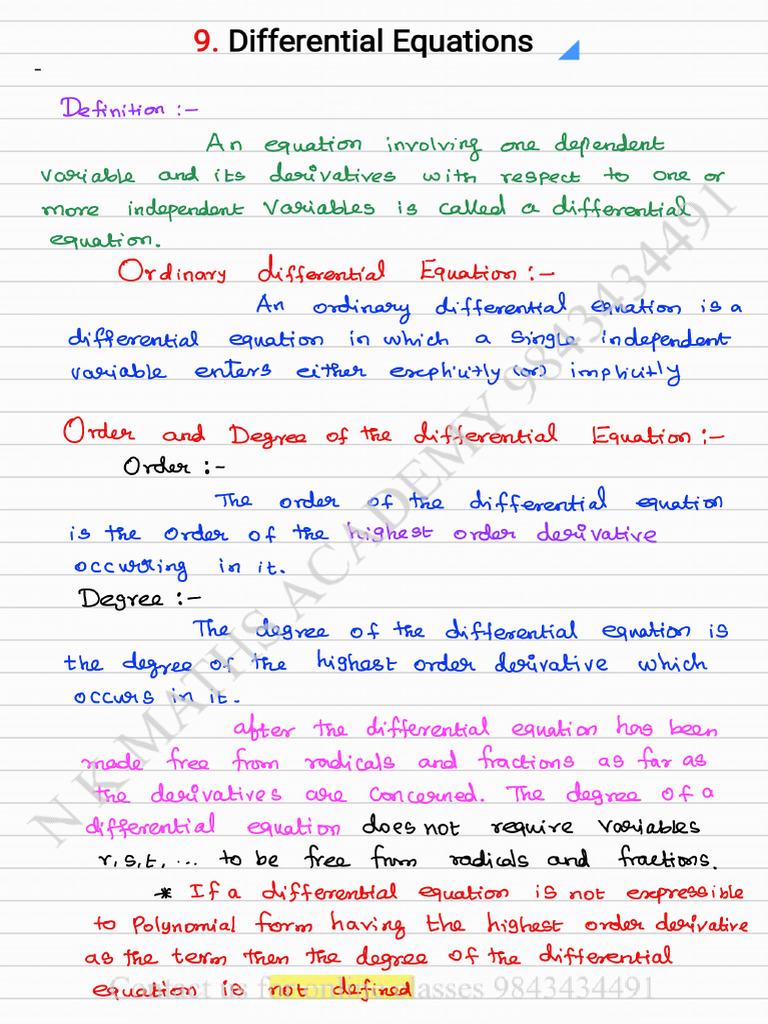 9. Differential Equations
-
Definition :-
An equation involving one dependent
variable and its derivatives with respect to one or
more independent Variables is called a differential
equation.
Ordinary differential Equation :-
An ordinary differential equation is a
differential equation in which a single independent
variable enters either explicitly (or) implicitly
Order and Degree of the differential Equation :-
Order :-
The order of the differential equation
is the order of the highest order derivative
occurring in it.
Degree :-
The degree of the differential equation is
the degree of the highest order derivative which
occurs in it.
after the differential equation has been
made free from radicals and fractions as far as
the derivatives are concerned. The degree of a
differential equation does not require variables
r, s, t, ... to be free from radicals and fractions.
* If a differential equation is not expressible
to Polynomial form having the highest order derivative
as the term then the degree of the differential
equation is not defined
N K MATHS ACADEMY 9843434491
Contact us for online classes 9843434491